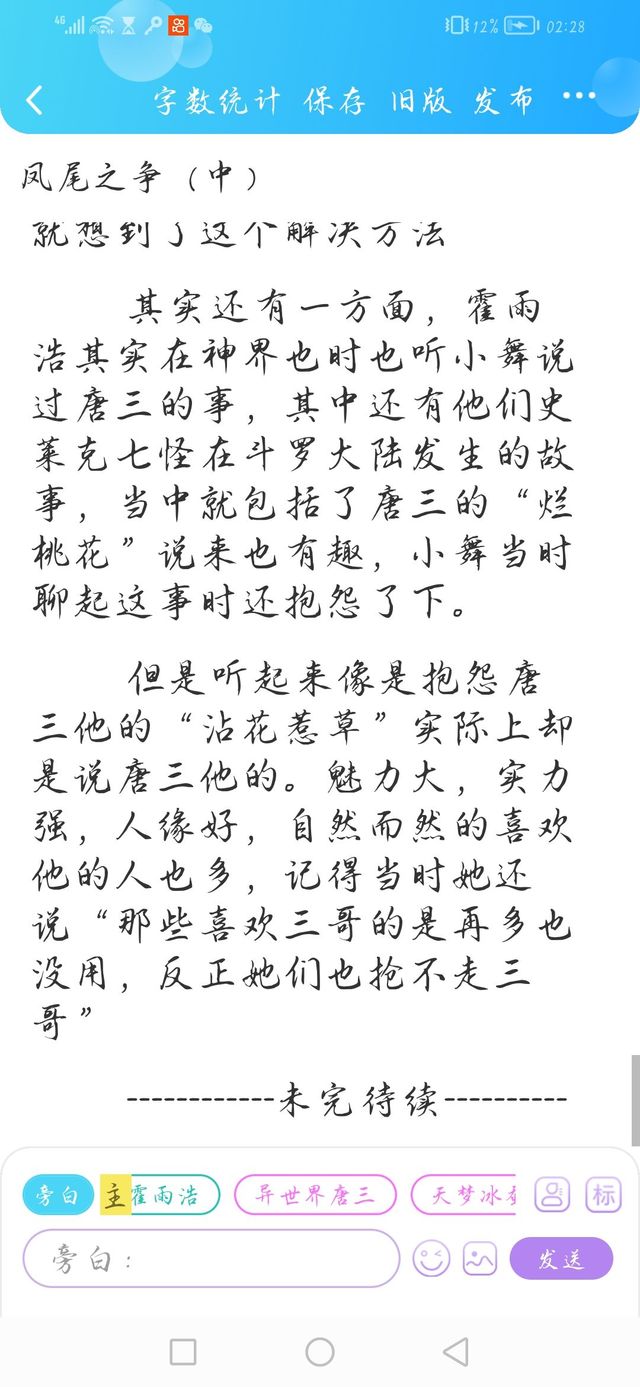 4G 12% 02:28
字数统计 保存 旧版 发布 ...
凤尾之争（中）
就想到了这个解决方法
其实还有一方面，霍雨
浩其实在神界也时也听小舞说
过唐三的事，其中还有他们史
莱克七怪在斗罗大陆发生的故
事，当中就包括了唐三的“烂
桃花”说来也有趣，小舞当时
聊起这事时还抱怨了下。
但是听起来像是抱怨唐
三他的“沾花惹草”实际上却
是说唐三他的。魅力大，实力
强，人缘好，自然而然的喜欢
他的人也多，记得当时她还
说“那些喜欢三哥的是再多也
没用，反正她们也抢不走三
哥”
------------未完待续----------
旁白 主 霍雨浩 异世界唐三 天梦冰 标
旁白： 发送